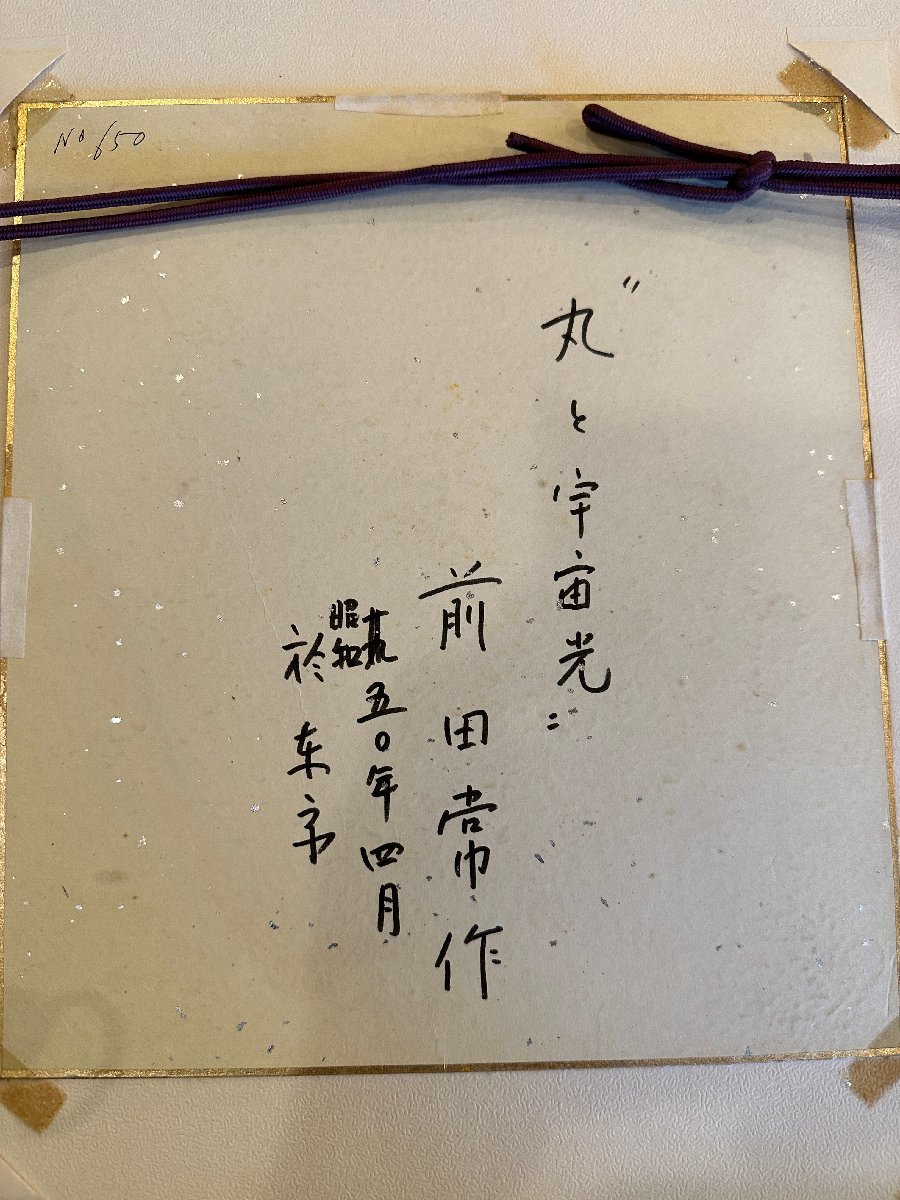 No 650
"丸と宇宙光"
前田常作
昭和五〇年四月
於东京